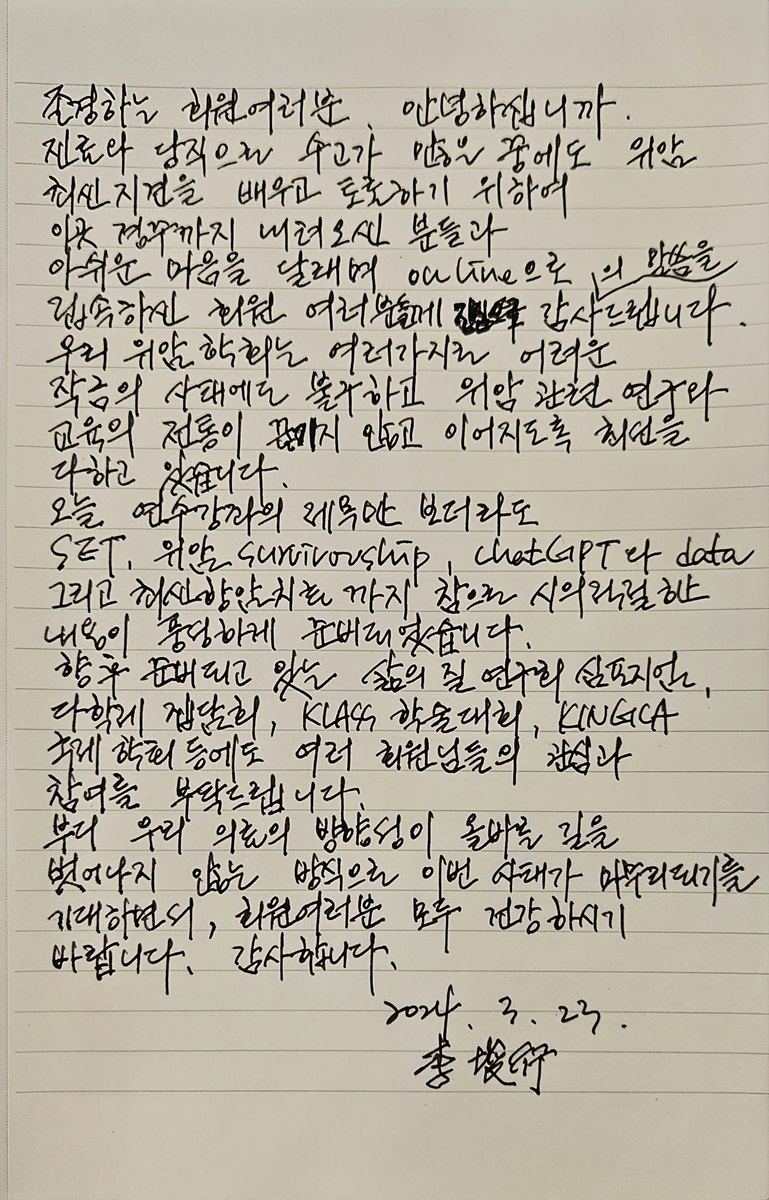 존경하는 회원여러분, 안녕하십니까.
진료와 당직으로 수고가 많은 중에도 위암
최신지견을 배우고 토론하기 위하여
이곳 경주까지 내려오신 분들과
아쉬운 마음을 달래며 online으로
접속하신 회원 여러분들께 감사의 말씀을 드립니다.
우리 위암학회는 여러가지로 어려운
작금의 사태에도 불구하고 위암 관련 연구와
교육의 전통이 끊기지 않고 이어지도록 최선을
다하고 있습니다.
오늘 연수강좌의 제목만 보더라도
SET, 위암 survivorship, chatGPT와 data
그리고 최신항암치료 까지 참으로 시의적절한
내용이 풍성하게 준비되었습니다.
향후 준비되고 있는 삶의 질 연구회 심포지엄,
다학제 집담회, KLASS 학술대회, KINGCA
국제학회 등에도 여러 회원님들의 관심과
참여를 부탁드립니다.
부디 우리 의료의 방향성이 올바른 길을
벗어나지 않는 방식으로 이번 사태가 마무리되기를
기대하면서, 회원여러분 모두 건강하시기
바랍니다. 감사합니다.
2024. 3. 23.
李